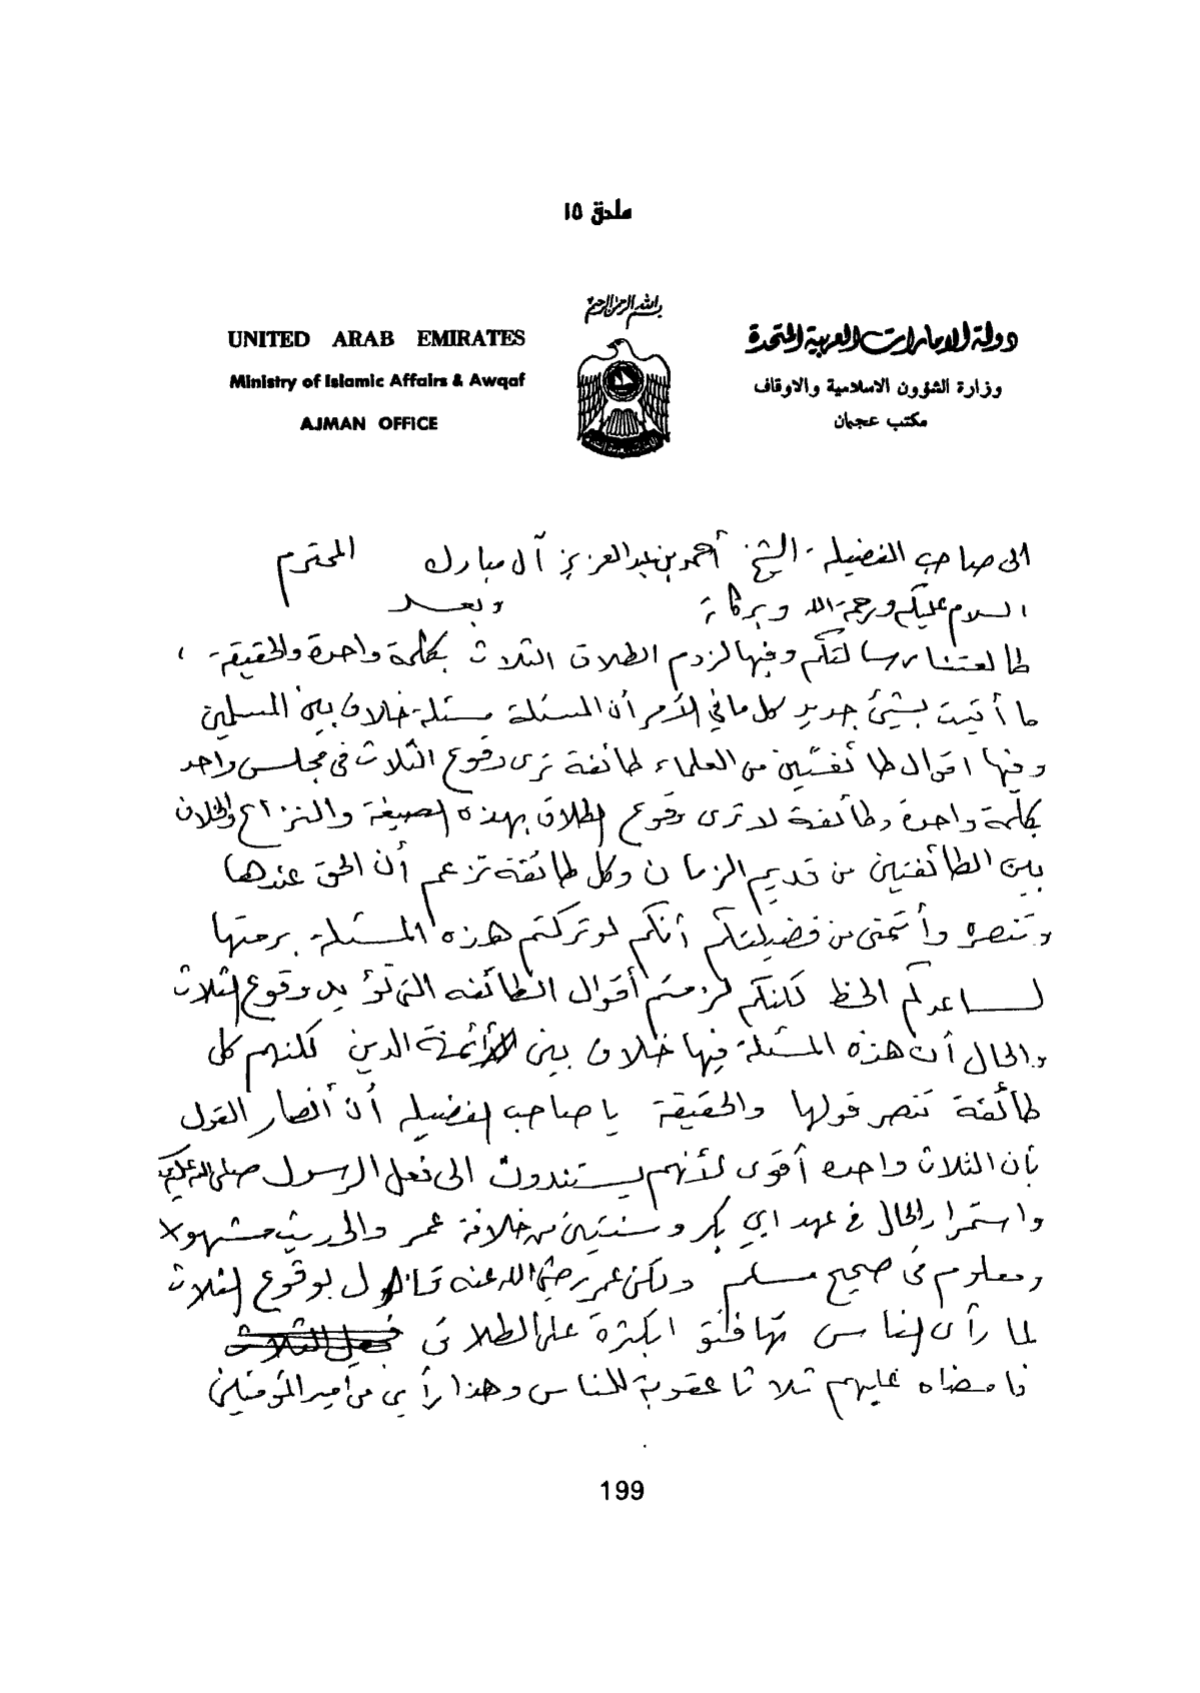 ملحق ١٥
بسم الله الرحمن الرحيم
UNITED ARAB EMIRATES
Ministry of Islamic Affairs & Awqaf
AJMAN OFFICE
دولة الامارات العربية المتحدة
وزارة الشؤون الاسلامية والاوقاف
مكتب عجمان
الى صاحب الفضيلة الشيخ أحمد بن عبدالعزيز آل مبارك المحترم
السلام عليكم ورحمة الله وبركاته وبعد
طالعتنا رسالتكم وفيها لزوم الطلاق الثلاث بكلمة واحدة والحقيقة،
ما أتيت بشيئ جديد كل ما في الأمر أن المسئلة مسئلة خلاف بين المسلمين
وفيها اقوال طائفتين من العلماء طائفة ترى وقوع الثلاث في مجلس واحد
بكلمة واحدة وطائفة لا ترى وقوع الطلاق بهذه الصيغة والنزاع والخلاف
بين الطائفتين من قديم الزمان وكل طائفة تزعم أن الحق عندها
وتنصره وأتمنى من فضيلتكم أنكم لو تركتم هذه المسئلة برمتها
لساعدكم الحظ لكنكم لزمتم أقوال الطائفه التي تؤيد وقوع الثلاث
والحال أن هذه المسئلة فيها خلاف بين الأئمة الدين لكنهم كل
طائفة تنصر قولها والحقيقة يا صاحب الفضيله أن أنصار القول
بأن الثلاث واحده أقوى لأنهم يستندون الى فعل الرسول صلى الله عليه
واستمرار الحال في عهد ابي بكر وسنتين من خلافة عمر والحديث مشهور
ومعلوم في صحيح مسلم ولكن عمر رضي الله عنه قال بوقوع الثلاث
لما رأى الناس تهافتو ابكثرة على الطلاق
فامضاه عليهم ثلاثا عقوبة للناس وهذا رأي من أمير المؤمنين
199